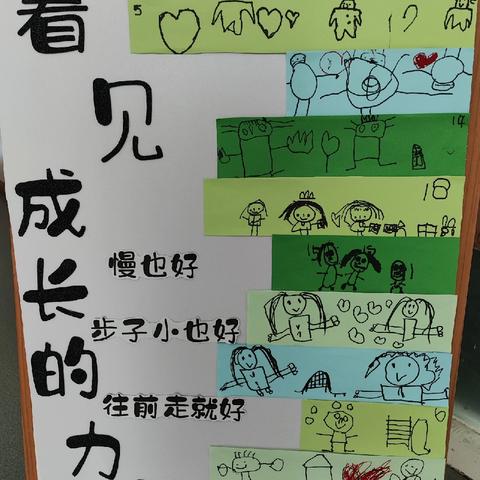 看见成长的力
慢也好
步子小也好
往前走就好
5
14
18